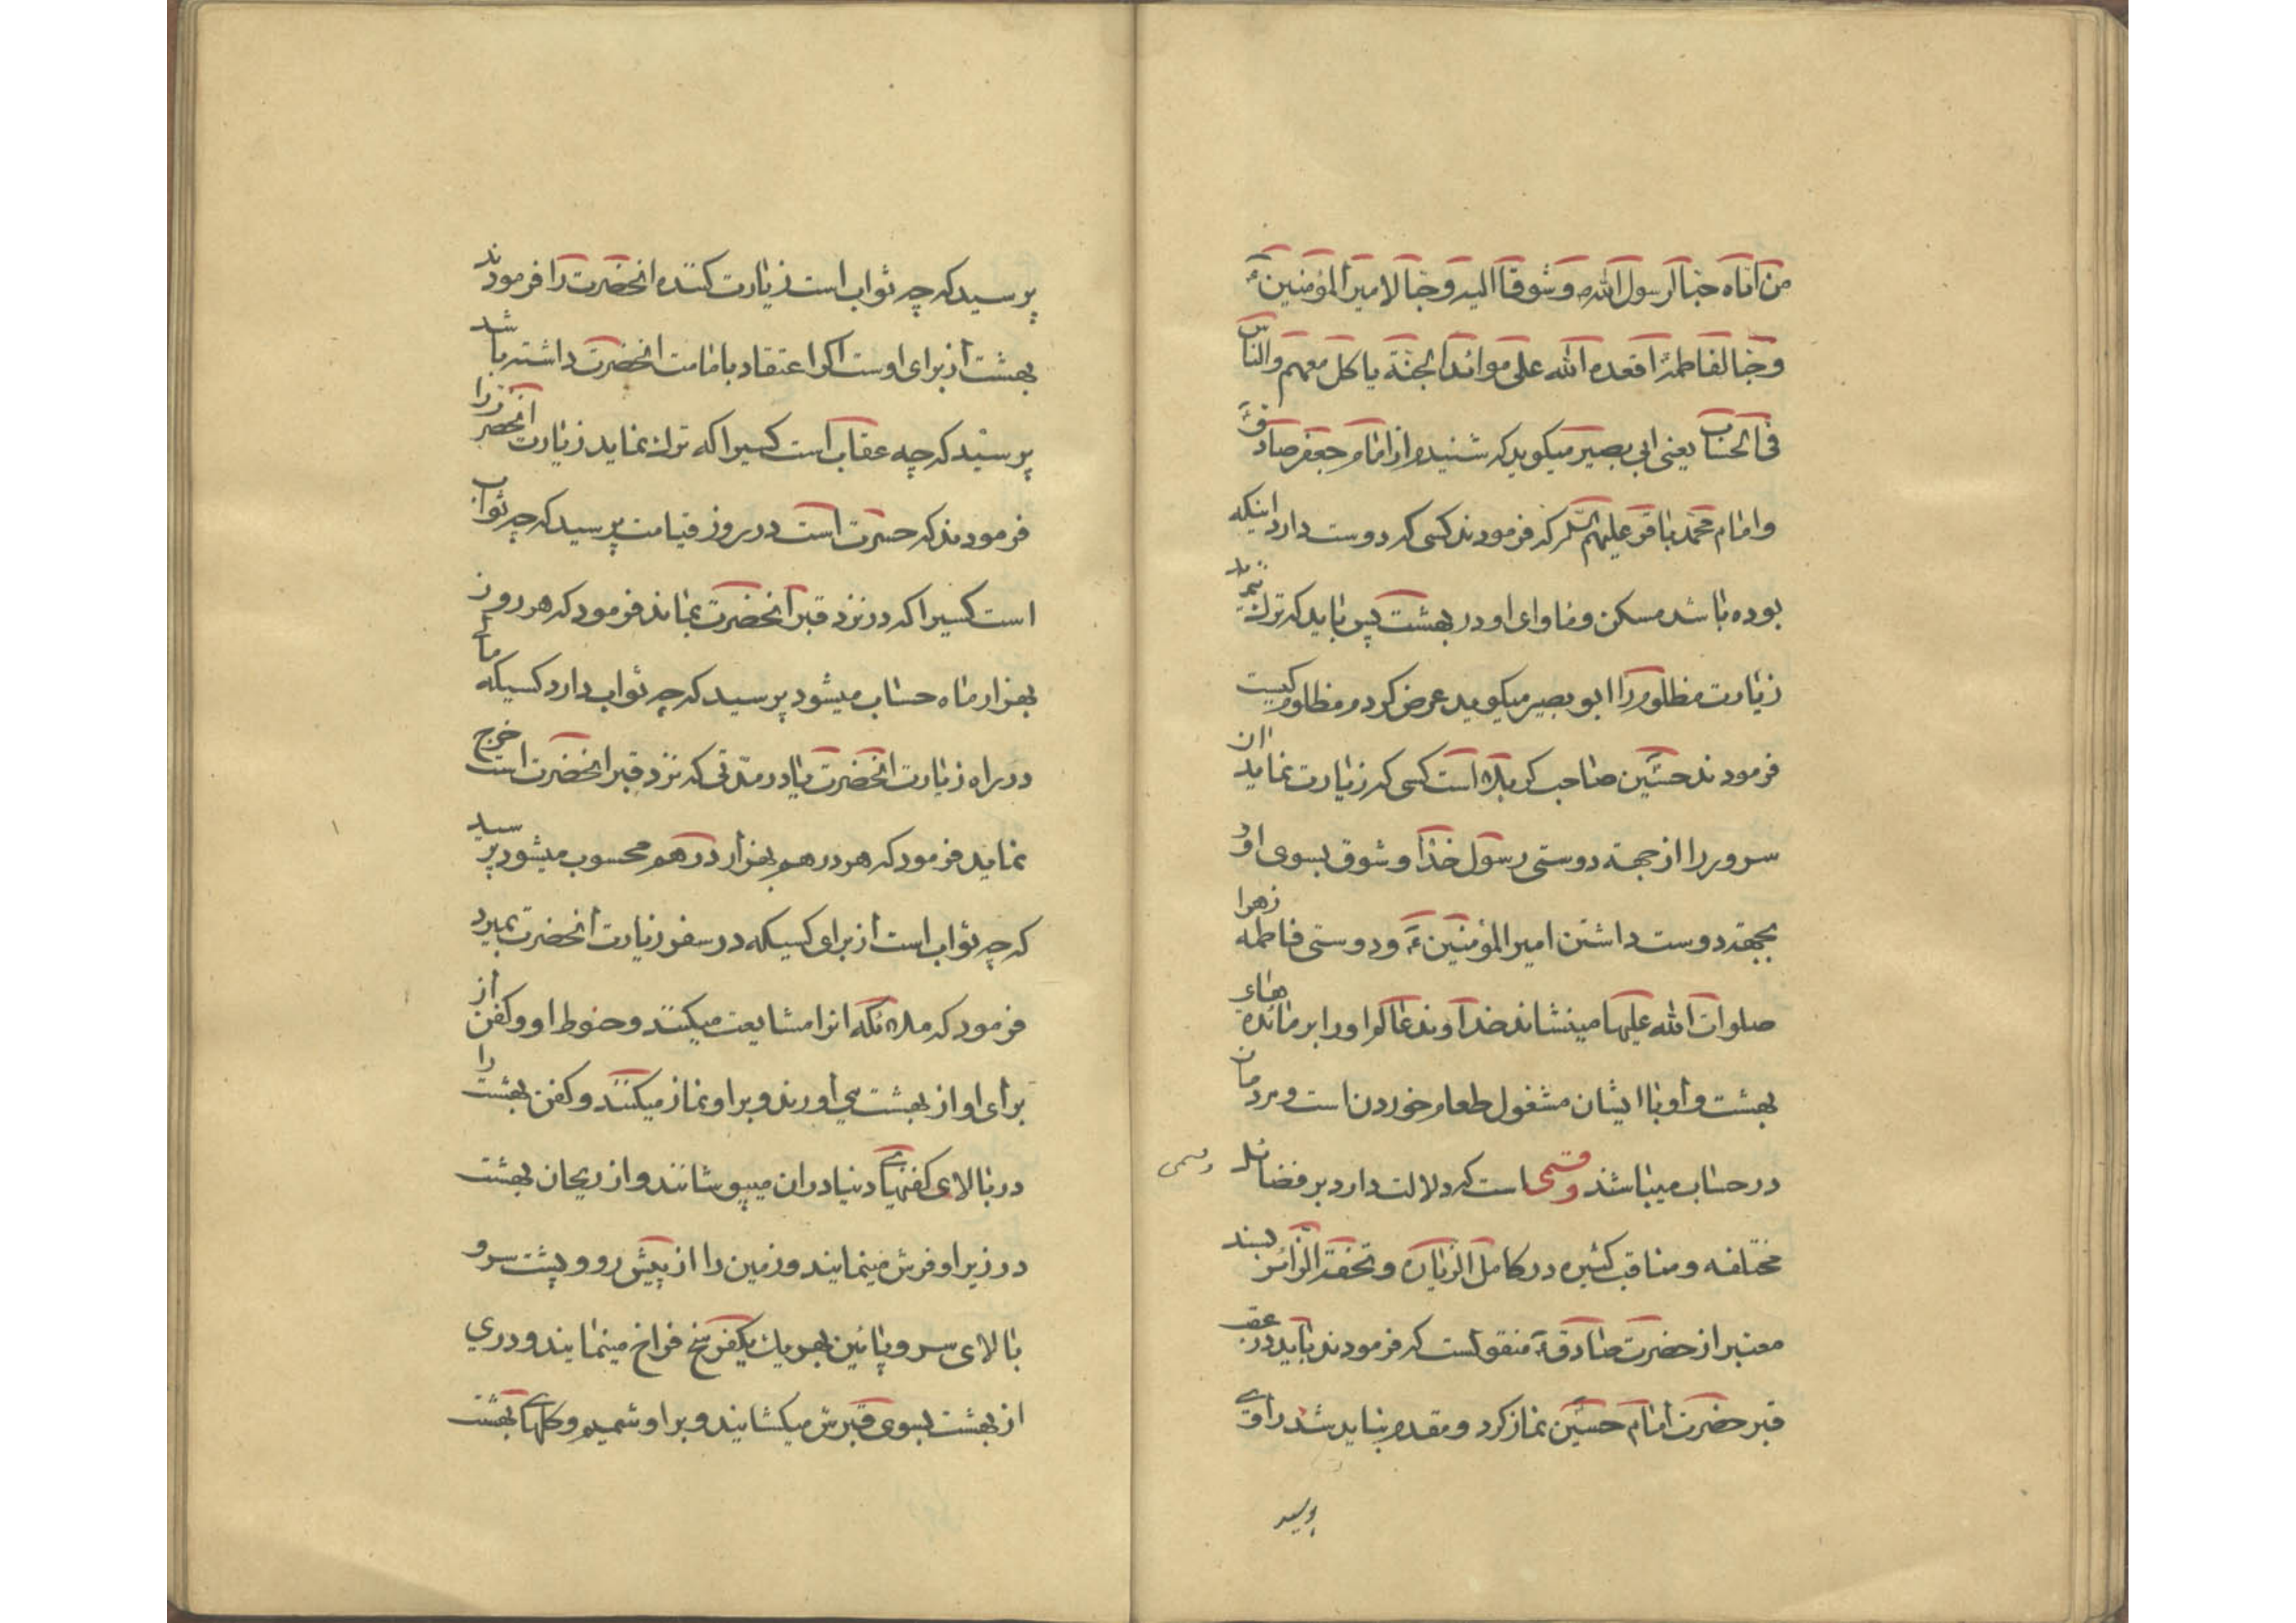 من اتاه حبا لرسول الله ص وشوقا الیه وحبا لامیر المؤمنین ع
وحبا لفاطمة اقعده الله علی موائد الجنة یاکل معهم والناس
فی الحساب یعنی ابی بصیر میکوید که شنیدم از امام جعفر صادق
وامام محمد باقر علیهم السلم که فرمودند کسی که دوست دارد اینکه
بوده باشد مسکن و ماوای او در بهشت پس باید که ترک نکند
زیارت مظلوم را ابو بصیر میکوید عرض کردم مظلوم کیست
فرمودند حسین صاحب کربلا است کسی که زیارت نماید ان
سرور را از جهة دوستی رسول خدا و شوق بسوی او و
بجهة دوست داشتن امیر المؤمنین ع و دوستی فاطمه زهرا
صلوات الله علیها مینشاند خداوند عالم او را بر مائده های
بهشت و او با ایشان مشغول طعام خوردن است و مردمان
در حساب میباشند و قسمی است که دلالت دارد بر فضائل
مختلفه و مناقب کثیره در کامل الزیاره و تحفة الزائر بسند
معتبر از حضرت صادق ع منقولست که فرمودند باید در عقب
قبر حضرت امام حسین نماز کرد و مقدم نباید شد راوی
پرسید
پرسید که چه ثواب است زیارت کننده انحضرت را فرمودند
بهشت از برای اوست اکر اعتقاد بامامت انحضرت داشته باشد
پرسید که چه عقاب است کسیرا که ترک نماید زیارت انحضرت را
فرمودند که حسرت است در روز قیامت پرسید که چه ثواب
است کسیرا که در نزد قبر انحضرت بماند فرمود که هر روز
بهزار ماه حساب میشود پرسید که چه ثواب دارد کسیکه مالی
در راه زیارت انحضرت یا در مدتی که نزد قبر انحضرت است خرج
نماید فرمود که هر درهم بهزار درهم محسوب میشود پرسید
که چه ثواب است از برای کسیکه در سفر زیارت انحضرت بمیرد
فرمود که ملائکه انرا مشایعت میکنند و حنوط او و کفن از
برای او از بهشت می اورند و بر او نماز میکنند و کفن بهشت را
در بالای کفنهای دنیا در ان میپوشانند و از ریحان بهشت
در زیر او فرش مینمایند و زمین را از پیش رو و پشت سر و
بالای سر و پائین بهر یک یکفرسخ فراخ مینمایند و دری
از بهشت بسوی قبرش میکشایند و بر او شمیم و کلهای بهشت